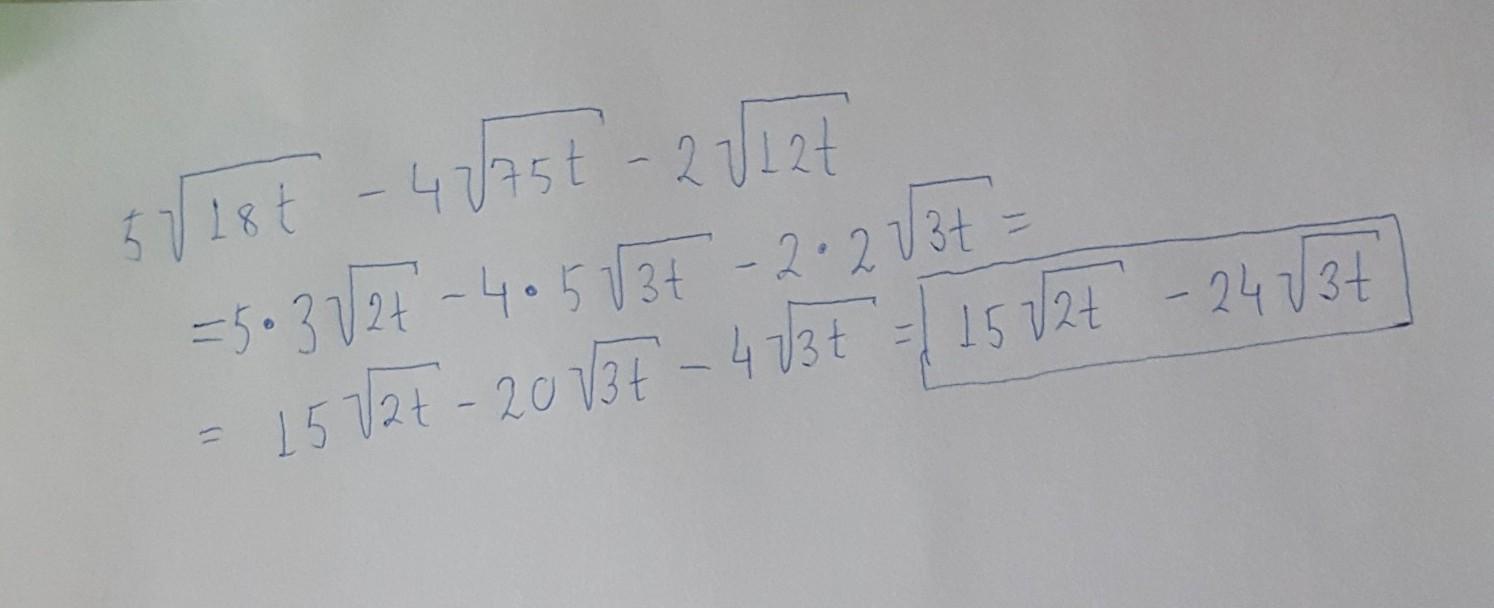 5√18t - 4√75t - 2√12t
=5·3√2t - 4·5√3t - 2·2√3t =
= 15√2t - 20√3t - 4√3t = 15√2t - 24√3t